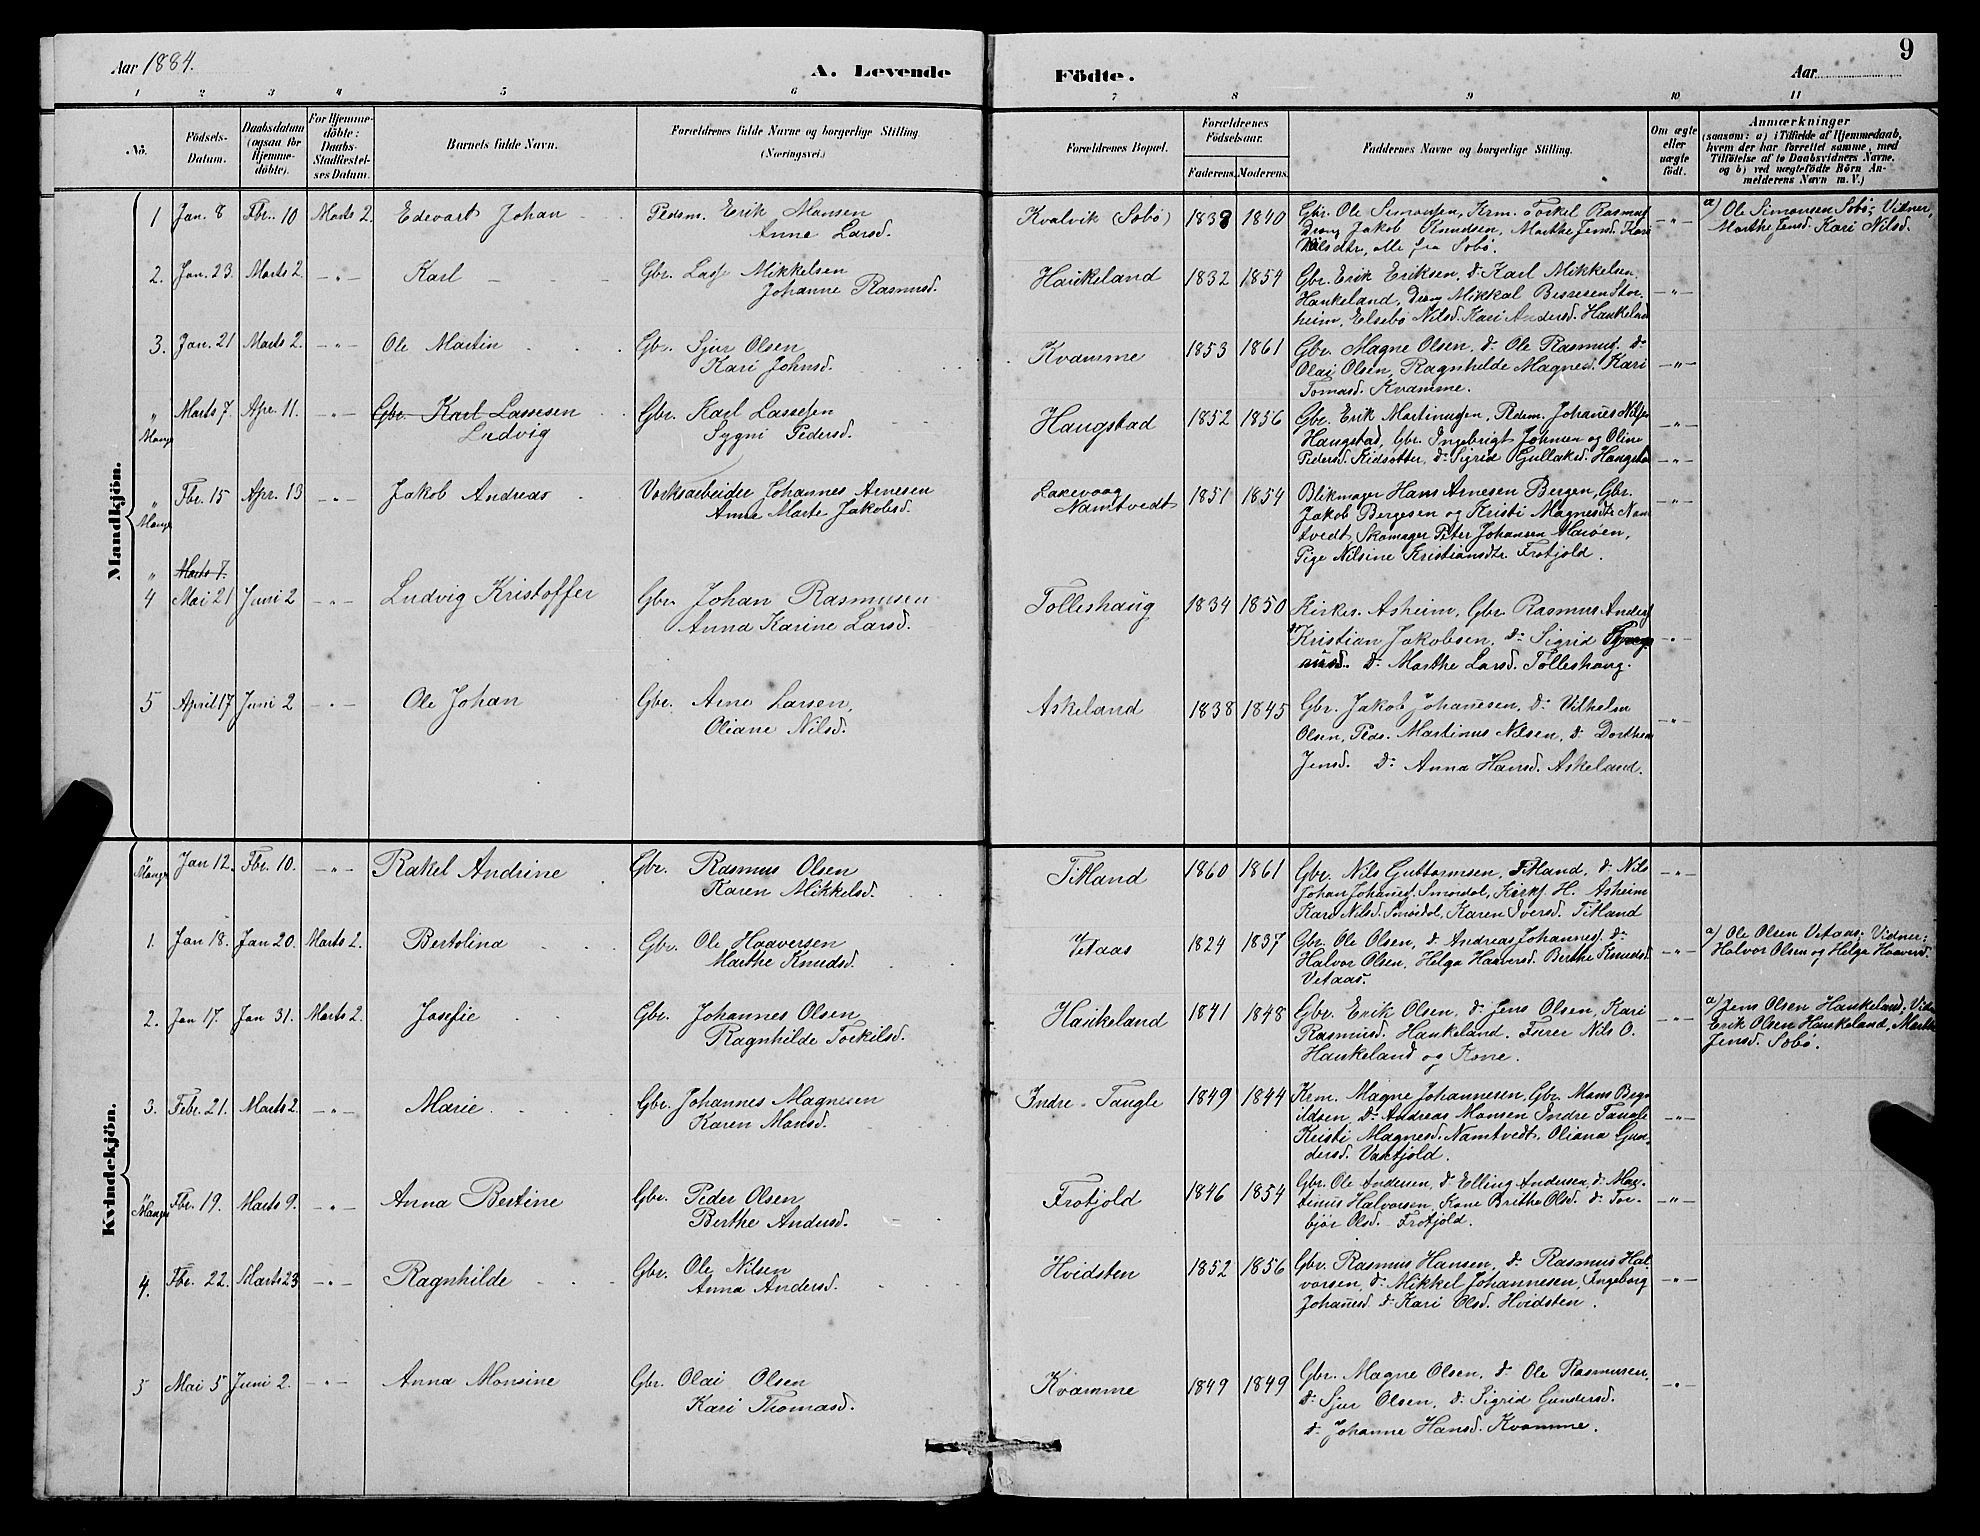 Aar 1884.
A. Levende
Födte.
Aar
9
1 2 3 4 5 6 7 8 9 10 11
Nö.
Födsels-
Datum.
Daabsdatum
(ogsaa for
Hjemme-
döbte).
For Hjemme-
döbte:
Daabs-
Stadfæstel-
ses Datum.
Barnets fulde Navn.
Forældrenes fulde Navne og borgerlige Stilling
(Næringsvei.)
Forældrenes Bopæl.
Forældrenes
Födselsaar.
Faderens. Moderens.
Faddernes Navne og borgerlige Stilling.
Om ægte
eller
uægte
födt.
Anmærkninger
(saasom: a) i Tilfælde af Hjemmedaab,
hvem der har forrettet samme, med
Tilföielse af to Daabsvidners Navne,
og b) ved uægtefödte Börn An-
melderens Navn m. V.)
Mandkjön.
1 Jan. 8 Fbr. 10 Marts 2 Edevart Johan
Pedsm. Erik Monsen
Anne Larsd.
Kvalvik (Sobø) 1838 1840
Gbr. Ole Simonsen, Krm. Torkel Rasmus
Dreng Jakob Knudsen, Marthe Jensd. Kari
Nilsdtr, alle fra Sobø.
-"-
a) Ole Simonsen Sobø; Vidner,
Marthe Jensd. Kari Nilsd.
2. Jan. 23. Marts 2 -"- Karl
Gbr. Lass Mikkelsen
Johanne Rasmusd.
Haukeland 1832 1854
Gbr. Erik Eriksen, do Karl Mikkelsen
Haukeland, Dreng Mikkal Bessesen Stor-
heim, Elsebø Nilsd. Kari Andersd. Haukeland
-"-
3. Jan. 21 Marts 2. -"- Ole Martin
Gbr. Sjur Olsen
Kari Johnsd.
Kvamme 1853 1861
Gbr. Magne Olsen, do Ole Rasmus. do
Olai Olsen, Ragnhilde Magnesd. Kari
Tomasd. Kvamme.
-"-
" Mange Marts 7. Apr. 11. -"- Gbr. Karl Lassesen
Ludvig
Gbr. Karl Lassesen
Sygni Pedersd.
Haugstad 1852 1856
Gbr. Erik Martinussen, Pedsm. Johanes Nilsen
Haugstad, Gbr. Ingebrigt Johnsen og Oline
Pedersd. Kidsotter, do Sigrid Gullaksd. Haugstad
-"-
-"-
" Mange Fbr. 15 Apr. 13 -"- Jakob Andreas
Værksarbeider Johannes Arnesen
Anna Marte Jakobsd.
Lakevaag
Namtvedt 1851 1854
Blikmager Hans Arnesen Bergen, Gbr.
Jakob Bergesen og Kristi Magnesdtr Nam
tvedt Skomager Peter Johansen Marøen,
Pige Nilsine Kristiansdtr. Frotjold.
-"-
" Marts 7.
4 Mai 21 Juni 2 -"- Ludvig Kristoffer
Gbr. Johan Rasmusen
Anna Karine Larsd.
Tolleshaug 1834 1850
Kirkes. Asheim, Gbr. Rasmus Anders
do Kristian Jakobsen, do Sigrid
do Marthe Larsd. Tolleshaug.
-"-
5 April 17 Juni 2 -"- Ole Johan
Gbr. Arne Larsen,
Oliane Nilsd.
Askeland 1838 1845
Gbr. Jakob Johanesen, do Vilhelm
Olsen, Peds. Martinus Nilsen, do Dorthea
Jensd. do Anna Hansd. Askeland.
-"-
Kvindekjön.
" Mange Jan 12. Fbr. 10. -"- Rakel Andrine
Gbr. Rasmus Olsen
Karen Mikkelsd.
Titland 1860 1861
Gbr. Nils Guttormsen, Titland, do Nils
Johan Johanes. Smørdal, Kirks. H. Asheim
Kari Nilsd. Smørdal, Karen Iversd. Titland
-"-
1. Jan 18. Jan 20. Marts 2. Bertolina
Gbr. Ole Haaversen
Marthe Knudsd.
Vetaas 1824 1837
Gbr. Ole Olsen, do Andreas Johannes. do
Halvor Olsen, Helga Haaversd. Berthe Knudsd.
Vetaas.
-"-
a) Ole Olsen Vetaas; Vidner:
Halvor Olsen og Helga Haaversd.
2. Jan 17. Jan 31. Marts 2. Josefie
Gbr. Johannes Olsen
Ragnhilde Torkilsd.
Haukeland 1841 1848
Gbr. Erik Olsen, do Jens Olsen, Kari
Rasmusd. Haukeland. Fører Nils O.
Haukeland og Kone.
-"-
a) Jens Olsen Haukeland, Vidn
Erik Olsen Haukeland, Marthe
Jensd. Sobø.
3. Febr. 21. Marts 2. -"- Marie
Gbr. Johannes Magnesen
Karen Monsd.
Indre-Tangle 1849 1844
Krm. Magne Johannesen, Gbr. Mons Bryn
ildsen, do Andreas Monsen Indre Tangle
Kristi Magnesd. Namtvedt, Oliana Gun-
dersd. Vaxtjold.
-"-
" Mange Fbr. 19. Marts 9. -"- Anna Bertine
Gbr. Peder Olsen
Berthe Andersd.
Frotjold 1846 1854
Gbr. Ole Andersen, do Elling Andersen, do Mar-
tinus Halvorsen, Kone Brithe Olsd. do Tor-
bjør Olsd. Frotjold.
-"-
4. Fbr. 22. Marts 23 -"- Ragnhilde
Gbr. Ole Nilsen
Anna Andersd.
Hvidsten 1852 1856
Gbr. Rasmus Hansen, do Rasmus Hal-
vorsen, do Mikkel Johannesen, Ingeborg
Johanesd. do Kari Olsd. Hvidsten.
-"-
5 Mai 5 Juni 2. -"- Anna Monsine
Gbr. Olai Olsen
Kari Thomasd.
Kvamme 1849 1849
Gbr. Magne Olsen, do Ole Rasmusen,
do Sjur Olsen, do Sigrid Gundersd.
do Johanne Hansd. Kvamme.
-"-